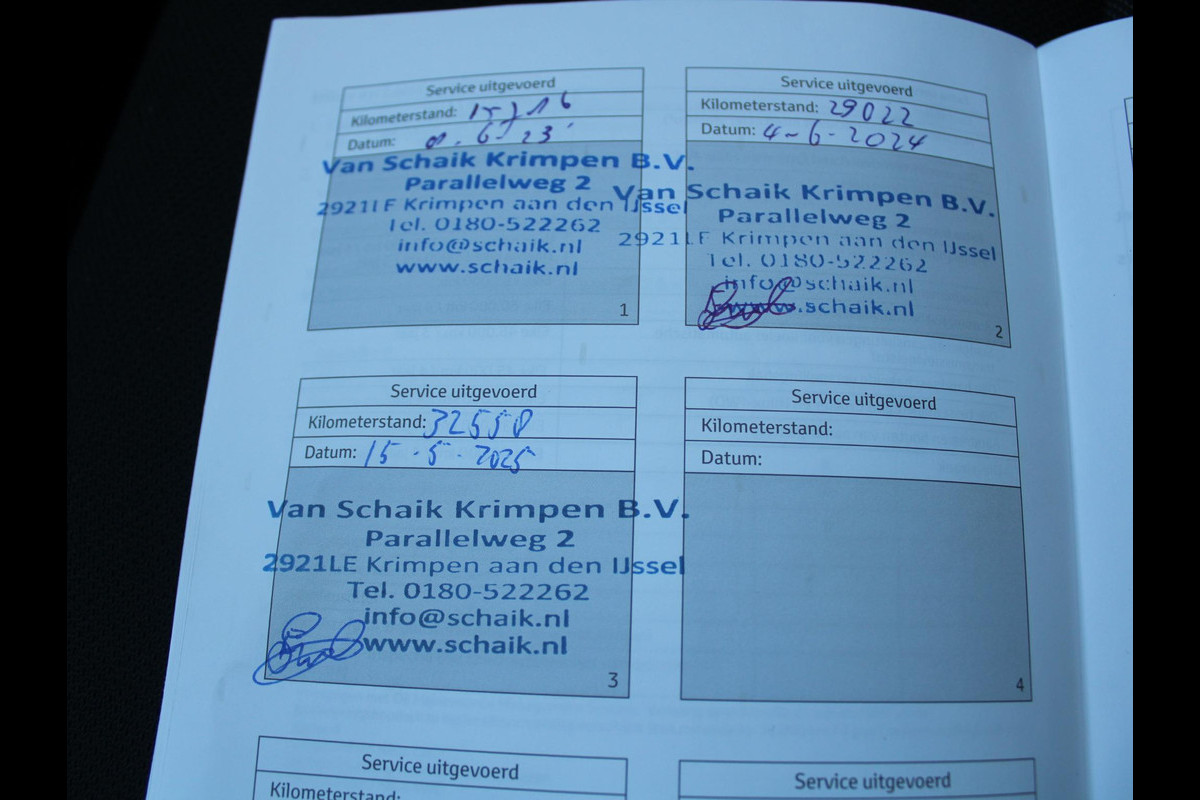 Service uitgevoerd
Kilometerstand:
Datum: 6-23
Van Schaik Krimpen B.V.
Parallelweg 2
2921LE Krimpen aan den IJssel
Tel. 0180-522262
info@schaik.nl
www.schaik.nl
1
Service uitgevoerd
Kilometerstand: 29022
Datum: 4-6-2024
Van Schaik Krimpen B.V.
Parallelweg 2
2921LE Krimpen aan den IJssel
Tel. 0180-522262
info@schaik.nl
www.schaik.nl
2
Service uitgevoerd
Kilometerstand: 32558
Datum: 15-5-2025
Van Schaik Krimpen B.V.
Parallelweg 2
2921LE Krimpen aan den IJssel
Tel. 0180-522262
info@schaik.nl
www.schaik.nl
3
Service uitgevoerd
Kilometerstand:
Datum:
4
Service uitgevoerd
Kilometerstand:
Service uitgevoerd